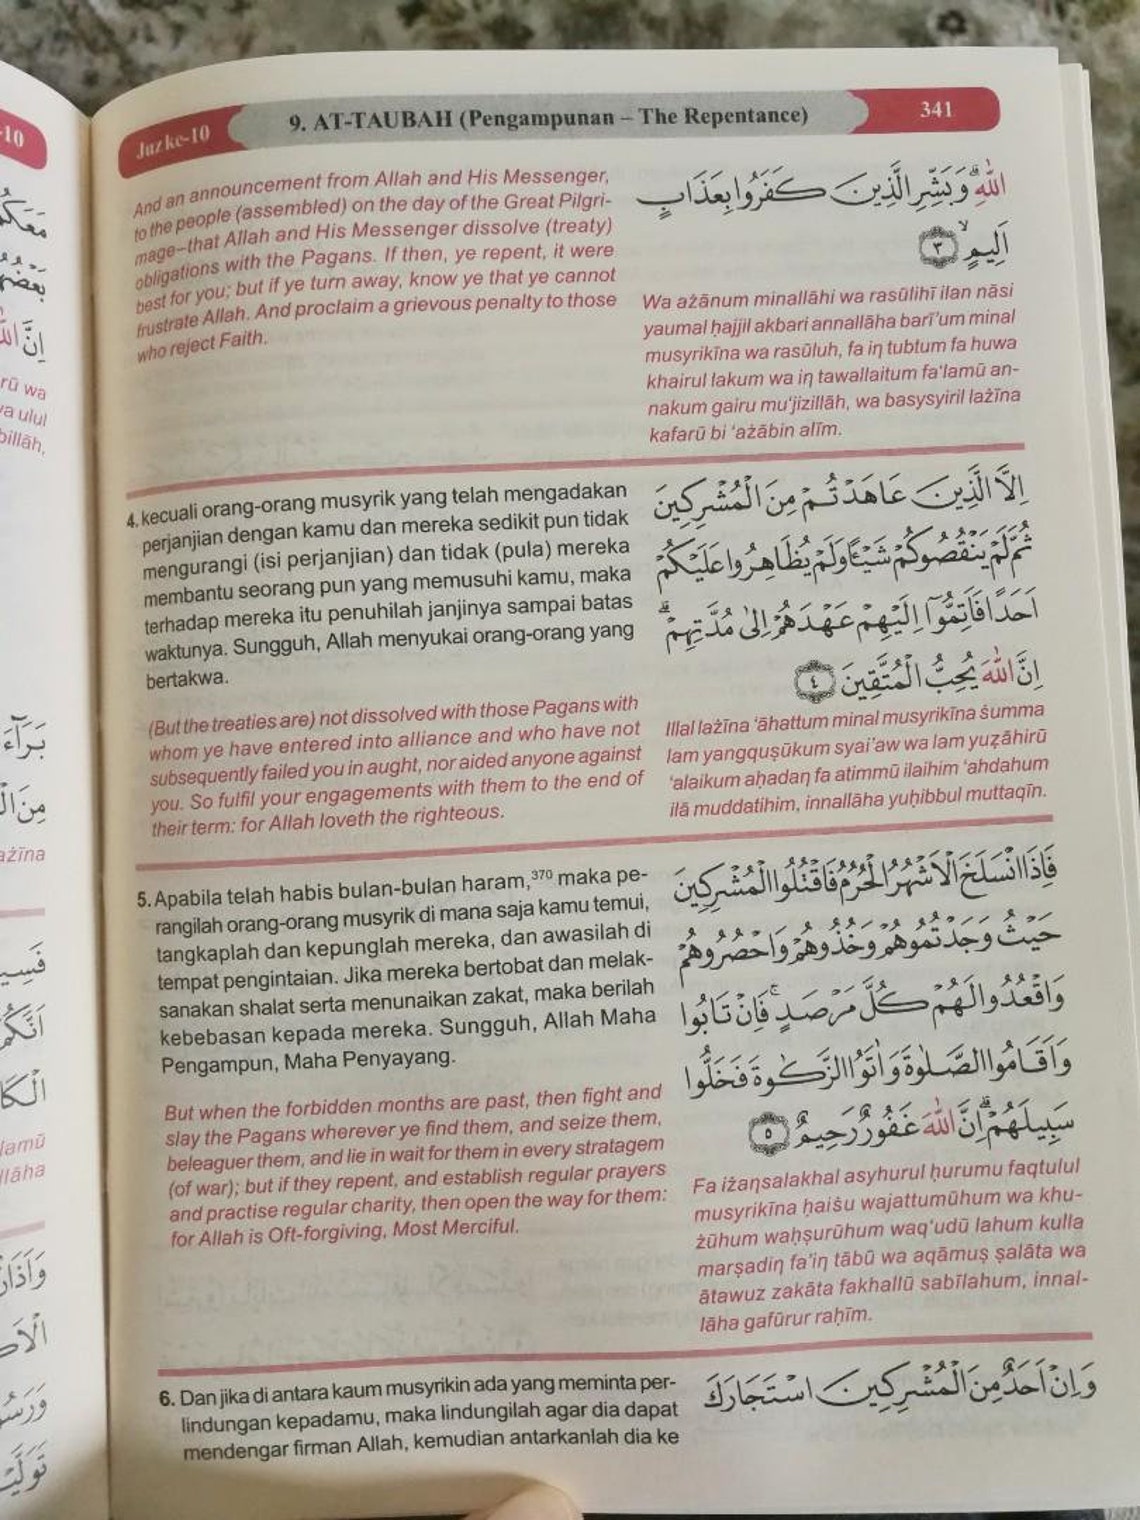 -10
Juz ke-10
9. AT-TAUBAH (Pengampunan – The Repentance)
341
And an announcement from Allah and His Messenger,
to the people (assembled) on the day of the Great Pilgri-
mage–that Allah and His Messenger dissolve (treaty)
obligations with the Pagans. If then, ye repent, it were
best for you; but if ye turn away, know ye that ye cannot
frustrate Allah. And proclaim a grievous penalty to those
who reject Faith.
اللّٰهِ ۗوَبَشِّرِ الَّذِيْنَ كَفَرُوْا بِعَذَابٍ
اَلِيْمٍۙ ٣
Wa ażānum minallāhi wa rasūlihī ilan nāsi
yaumal ḥajjil akbari annallāha barī'um minal
musyrikīna wa rasūluh, fa iƞ tubtum fa huwa
khairul lakum wa iƞ tawallaitum fa'lamū an-
nakum gairu mu'jizillāh, wa basysyiril lażīna
kafarū bi 'ażābin alīm.
4. kecuali orang-orang musyrik yang telah mengadakan
perjanjian dengan kamu dan mereka sedikit pun tidak
mengurangi (isi perjanjian) dan tidak (pula) mereka
membantu seorang pun yang memusuhi kamu, maka
terhadap mereka itu penuhilah janjinya sampai batas
waktunya. Sungguh, Allah menyukai orang-orang yang
bertakwa.
(But the treaties are) not dissolved with those Pagans with
whom ye have entered into alliance and who have not
subsequently failed you in aught, nor aided anyone against
you. So fulfil your engagements with them to the end of
their term: for Allah loveth the righteous.
اِلَّا الَّذِيْنَ عَاهَدْتُّمْ مِّنَ الْمُشْرِكِيْنَ
ثُمَّ لَمْ يَنْقُصُوْكُمْ شَيْـًٔا وَّلَمْ يُظَاهِرُوْا عَلَيْكُمْ
اَحَدًا فَاَتِمُّوْٓا اِلَيْهِمْ عَهْدَهُمْ اِلٰى مُدَّتِهِمْۗ
اِنَّ اللّٰهَ يُحِبُّ الْمُتَّقِيْنَ ٤
Illal lażīna 'āhattum minal musyrikīna ṡumma
lam yangquṣūkum syai'aw wa lam yuẓāhirū
'alaikum aḥadaƞ fa atimmū ilaihim 'ahdahum
ilā muddatihim, innallāha yuḥibbul muttaqīn.
5. Apabila telah habis bulan-bulan haram,370 maka pe-
rangilah orang-orang musyrik di mana saja kamu temui,
tangkaplah dan kepunglah mereka, dan awasilah di
tempat pengintaian. Jika mereka bertobat dan melak-
sanakan shalat serta menunaikan zakat, maka berilah
kebebasan kepada mereka. Sungguh, Allah Maha
Pengampun, Maha Penyayang.
But when the forbidden months are past, then fight and
slay the Pagans wherever ye find them, and seize them,
beleaguer them, and lie in wait for them in every stratagem
(of war); but if they repent, and establish regular prayers
and practise regular charity, then open the way for them:
for Allah is Oft-forgiving, Most Merciful.
فَاِذَا انْسَلَخَ الْاَشْهُرُ الْحُرُمُ فَاقْتُلُوا الْمُشْرِكِيْنَ
حَيْثُ وَجَدْتُّمُوْهُمْ وَخُذُوْهُمْ وَاحْصُرُوْهُمْ
وَاقْعُدُوْا لَهُمْ كُلَّ مَرْصَدٍۚ فَاِنْ تَابُوْا
وَاَقَامُوا الصَّلٰوةَ وَاٰتَوُا الزَّكٰوةَ فَخَلُّوْا
سَبِيْلَهُمْۗ اِنَّ اللّٰهَ غَفُوْرٌ رَّحِيْمٌ ٥
Fa iżaƞsalakhal asyhurul ḥurumu faqtulul
musyrikīna ḥaiṡu wajattumūhum wa khu-
żūhum waḥṣurūhum waq'udū lahum kulla
marṣadiƞ fa'iƞ tābū wa aqāmuṣ ṣalāta wa
ātawuz zakāta fakhallū sabīlahum, innal-
lāha gafūrur raḥīm.
6. Dan jika di antara kaum musyrikin ada yang meminta per-
lindungan kepadamu, maka lindungilah agar dia dapat
mendengar firman Allah, kemudian antarkanlah dia ke
وَاِنْ اَحَدٌ مِّنَ الْمُشْرِكِيْنَ اسْتَجَارَكَ